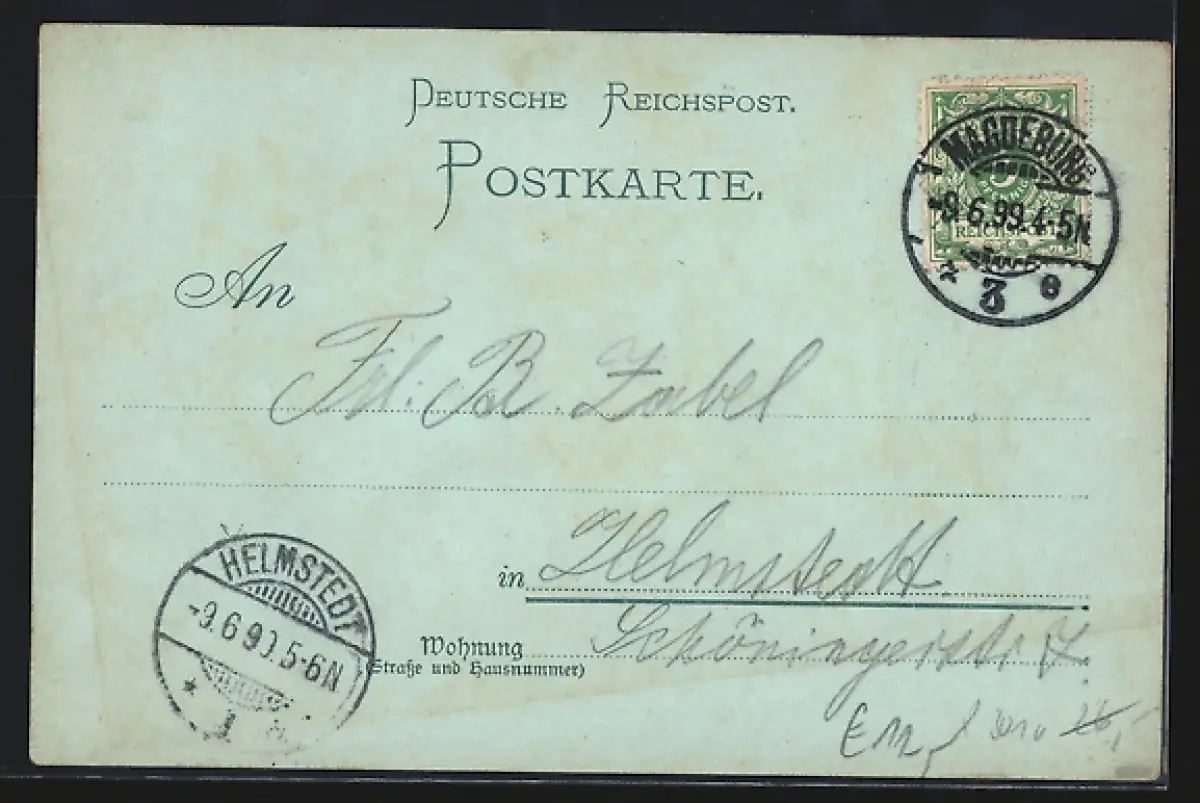 DEUTSCHE REICHSPOST.
POSTKARTE.
MAGDEBURG
-9.6.99.4-5N
* 3 e
REICHSPOST
An
Frl. B. Zabel
in Helmstedt
HELMSTEDT
-9.6.99.5-6N
* 1
Wohnung Schöningerstr 7.
(Straße und Hausnummer)